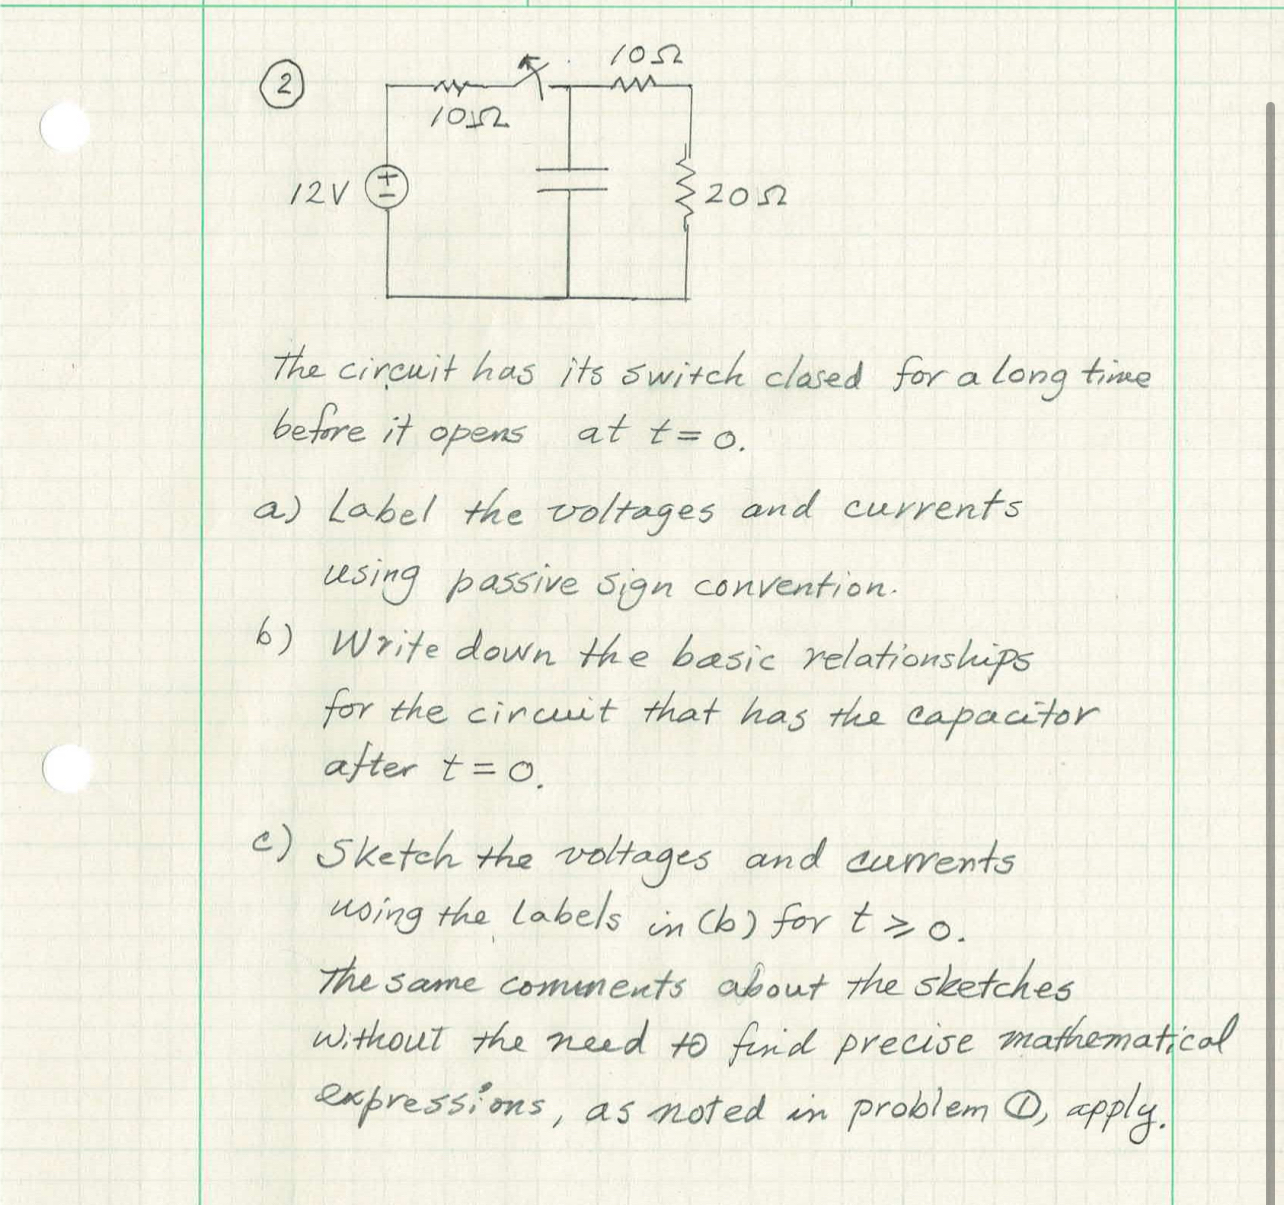 2
10Ω
10Ω
12V
+
−
20Ω
The circuit has its switch closed for a long time
before it opens at t=0.
a) Label the voltages and currents
using passive sign convention.
b) Write down the basic relationships
for the circuit that has the capacitor
after t=0.
c) Sketch the voltages and currents
using the labels in (b) for t ⩾ 0.
The same comments about the sketches
without the need to find precise mathematical
expressions, as noted in problem ①, apply.